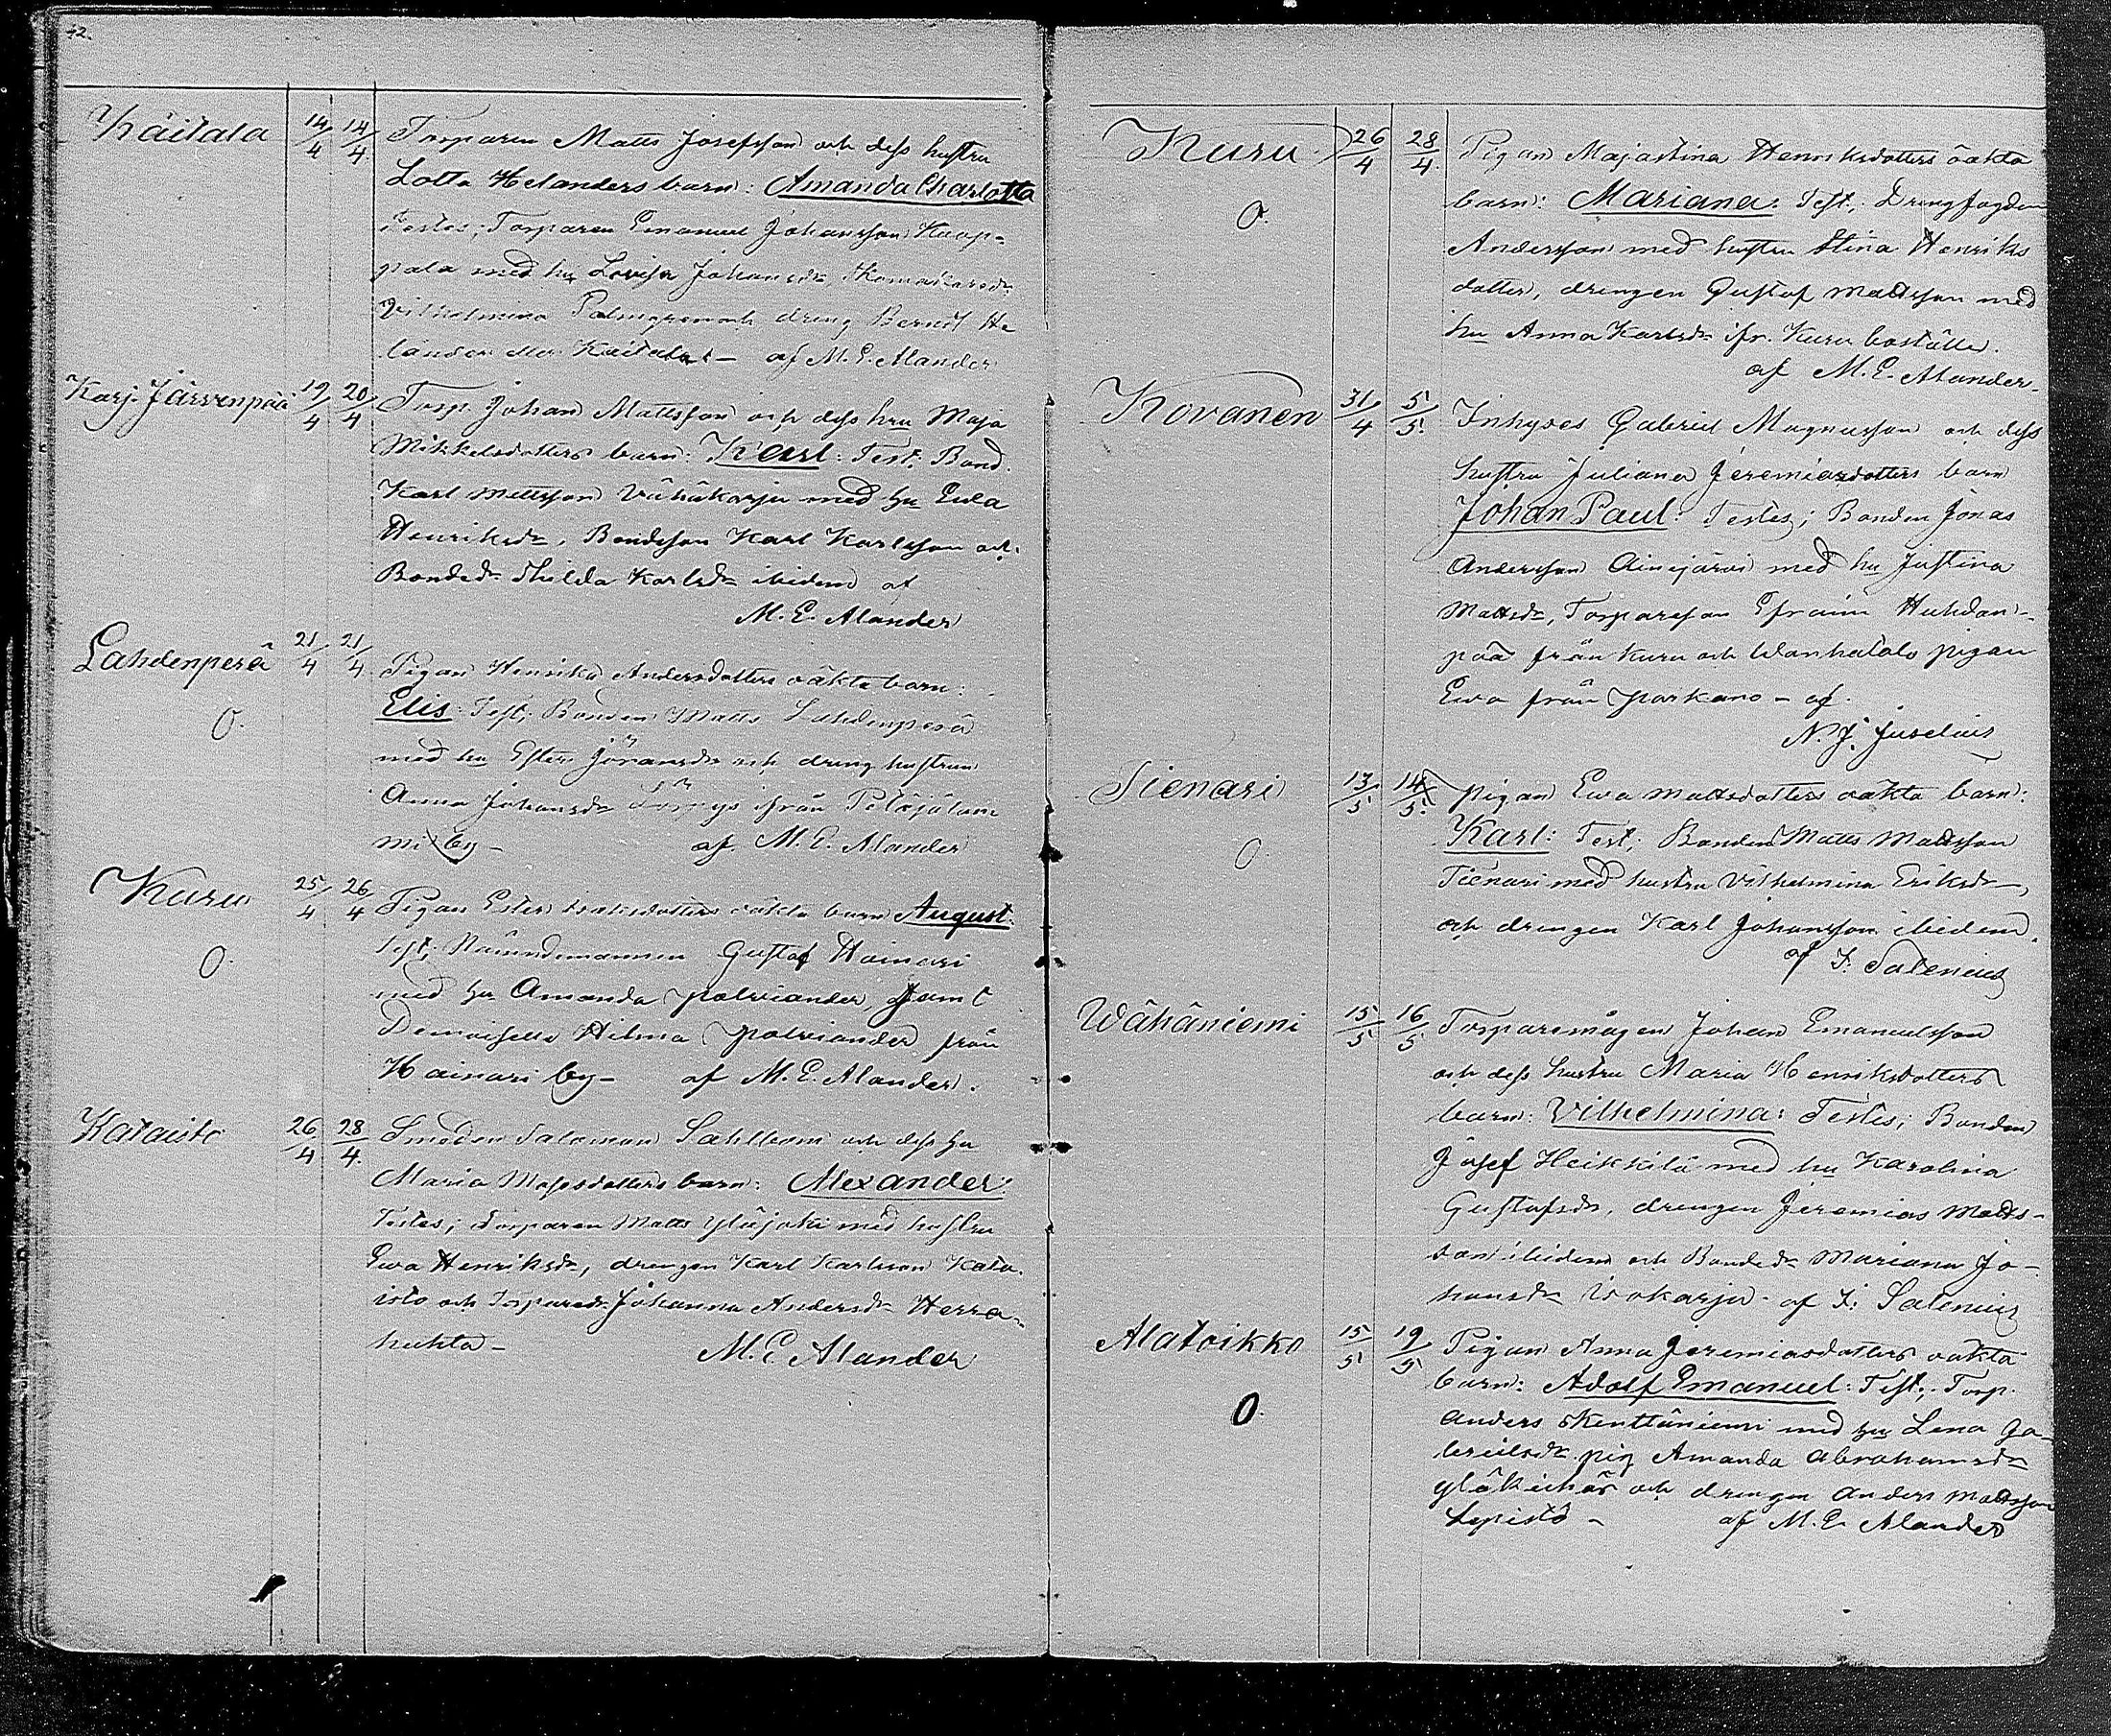 42.
Kaitala 14/4 14/4 Torparen Matts Josefsson och dess hustru
Lotta Helanders barn: Amanda Charlotta
Testes; Torparen Emanuel Johansson Kaap-
pala med hu Lovisa Johansdr, Skomakaredr
Vilhelmina Palmgren och dreng Berndt He
lander Kaitala - af M. E. Alander
Karj. Järvenpää 19/4 20/4 Torp. Johan Mattsson och dess hru Maja
Mikkelsdotters barn: Karl: Test; Bond.
Karl Mattsson Vähäkarju med hu Ewa
Henriksdr, Bondeson Karl Karlsson och
Bondedr Thilda Karlsdr ibidem af
M. E. Alander
Lahdenperä 21/4 21/4 Pigan Henrika Andersdotters oäkta barn:
O. Elis: Test; Bonden Matts Lahdenperä
med hu Ester Jöransdr och dreng hustrun
Anna Johansdr ifrån Petäjälam
mi by - af M. E. Alander
Kuru 25/4 26/4 Pigan Ester Isaksdotters oäkta barn August.
O. Test; Nämndemannen Gustaf Hainari
med hu Amanda Palviander, samt
Demoiselle Hilma Palviander från
Hainari by - af M. E. Alander.
Kataisto 26/4 28/4. Smeden Salomon Sahlbom och dess hu
Maria Mosesdotters barn: Alexander:
Testes; Torparen Matts Yläjoki med hustru
Ewa Henriksdr, drengen Karl Karlsson Kata-
isto och Torparedr Johanna Andersdr Herra-
huhta - M. E. Alander
Kuru 26/4 28/4. Pigan Majastina Henriksdotters oäkta
O. barn: Mariana: Test; Drengfogden
Andersson med hustru Stina Henriks
dotter, drengen Gustaf Mattsson med
hu Anna Karlsdr ifr. Kuru boställe.
af M. E. Alander.
Kovanen 31/4 5/5. Inhyses Gabriel Magnusson och dess
hustru Juliana Jeremiasdotters barn
Johan Paul: Testes; Bonden Jonas
Andersson Ainejärvi med hu Justina
Mattsdr, Torpareson Efraim Huhdan-
pää från Kuru och Wanhatalo pigan
Ewa från Parkano - af
N. J. Juselius
Tienari 13/5 14/5. Pigan Ewa Mattsdotters oäkta barn:
O. Karl: Test; Bonden Matts Mattsson
Tienari med hustru Vilhelmina Eriksdr,
och drengen Karl Johansson ibidem.
af F. Salenius
Wähäniemi 15/5 16/5 Torparemågen Johan Emanuelsson
och dess hustru Maria Henriksdotters
barn: Vilhelmina: Testes; Bonden
Josef Heikkilä med hu Karolina
Gustafsdr, drengen Jeremias Matts-
son ibidem och Bondedr Mariana Jo-
hansdr Isokarju - af F. Salenius
Alatoikko 15/5 19/5 Pigan Anna Jeremiasdotters oäkta
O. barn: Adolf Emanuel: Test; Torp.
Anders Kenttäniemi med hu Lena Ga-
brielsdr pig Amanda Abrahamsdr
och drengen Anders Mattsson
Lepistö - af M. E. Alander